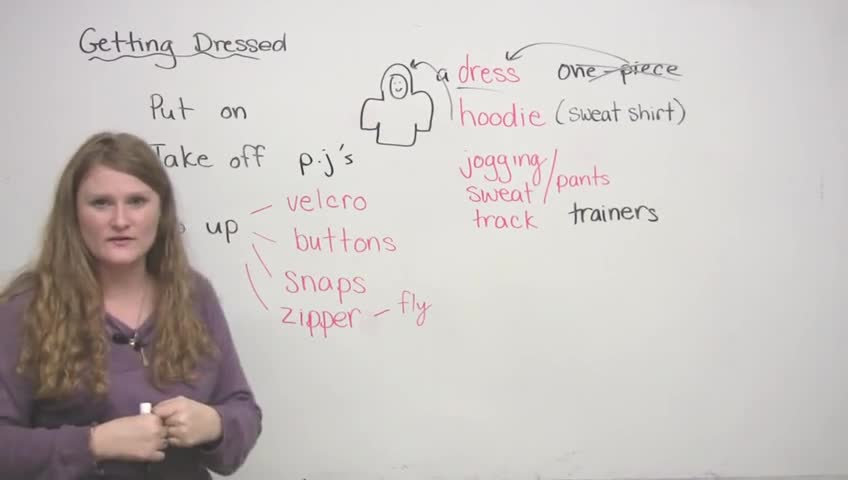 Getting Dressed
Put on
Take off p.j's
up
velcro
buttons
snaps
zipper - fly
a dress one-piece
hoodie (sweat shirt)
jogging/
sweat/pants
track trainers